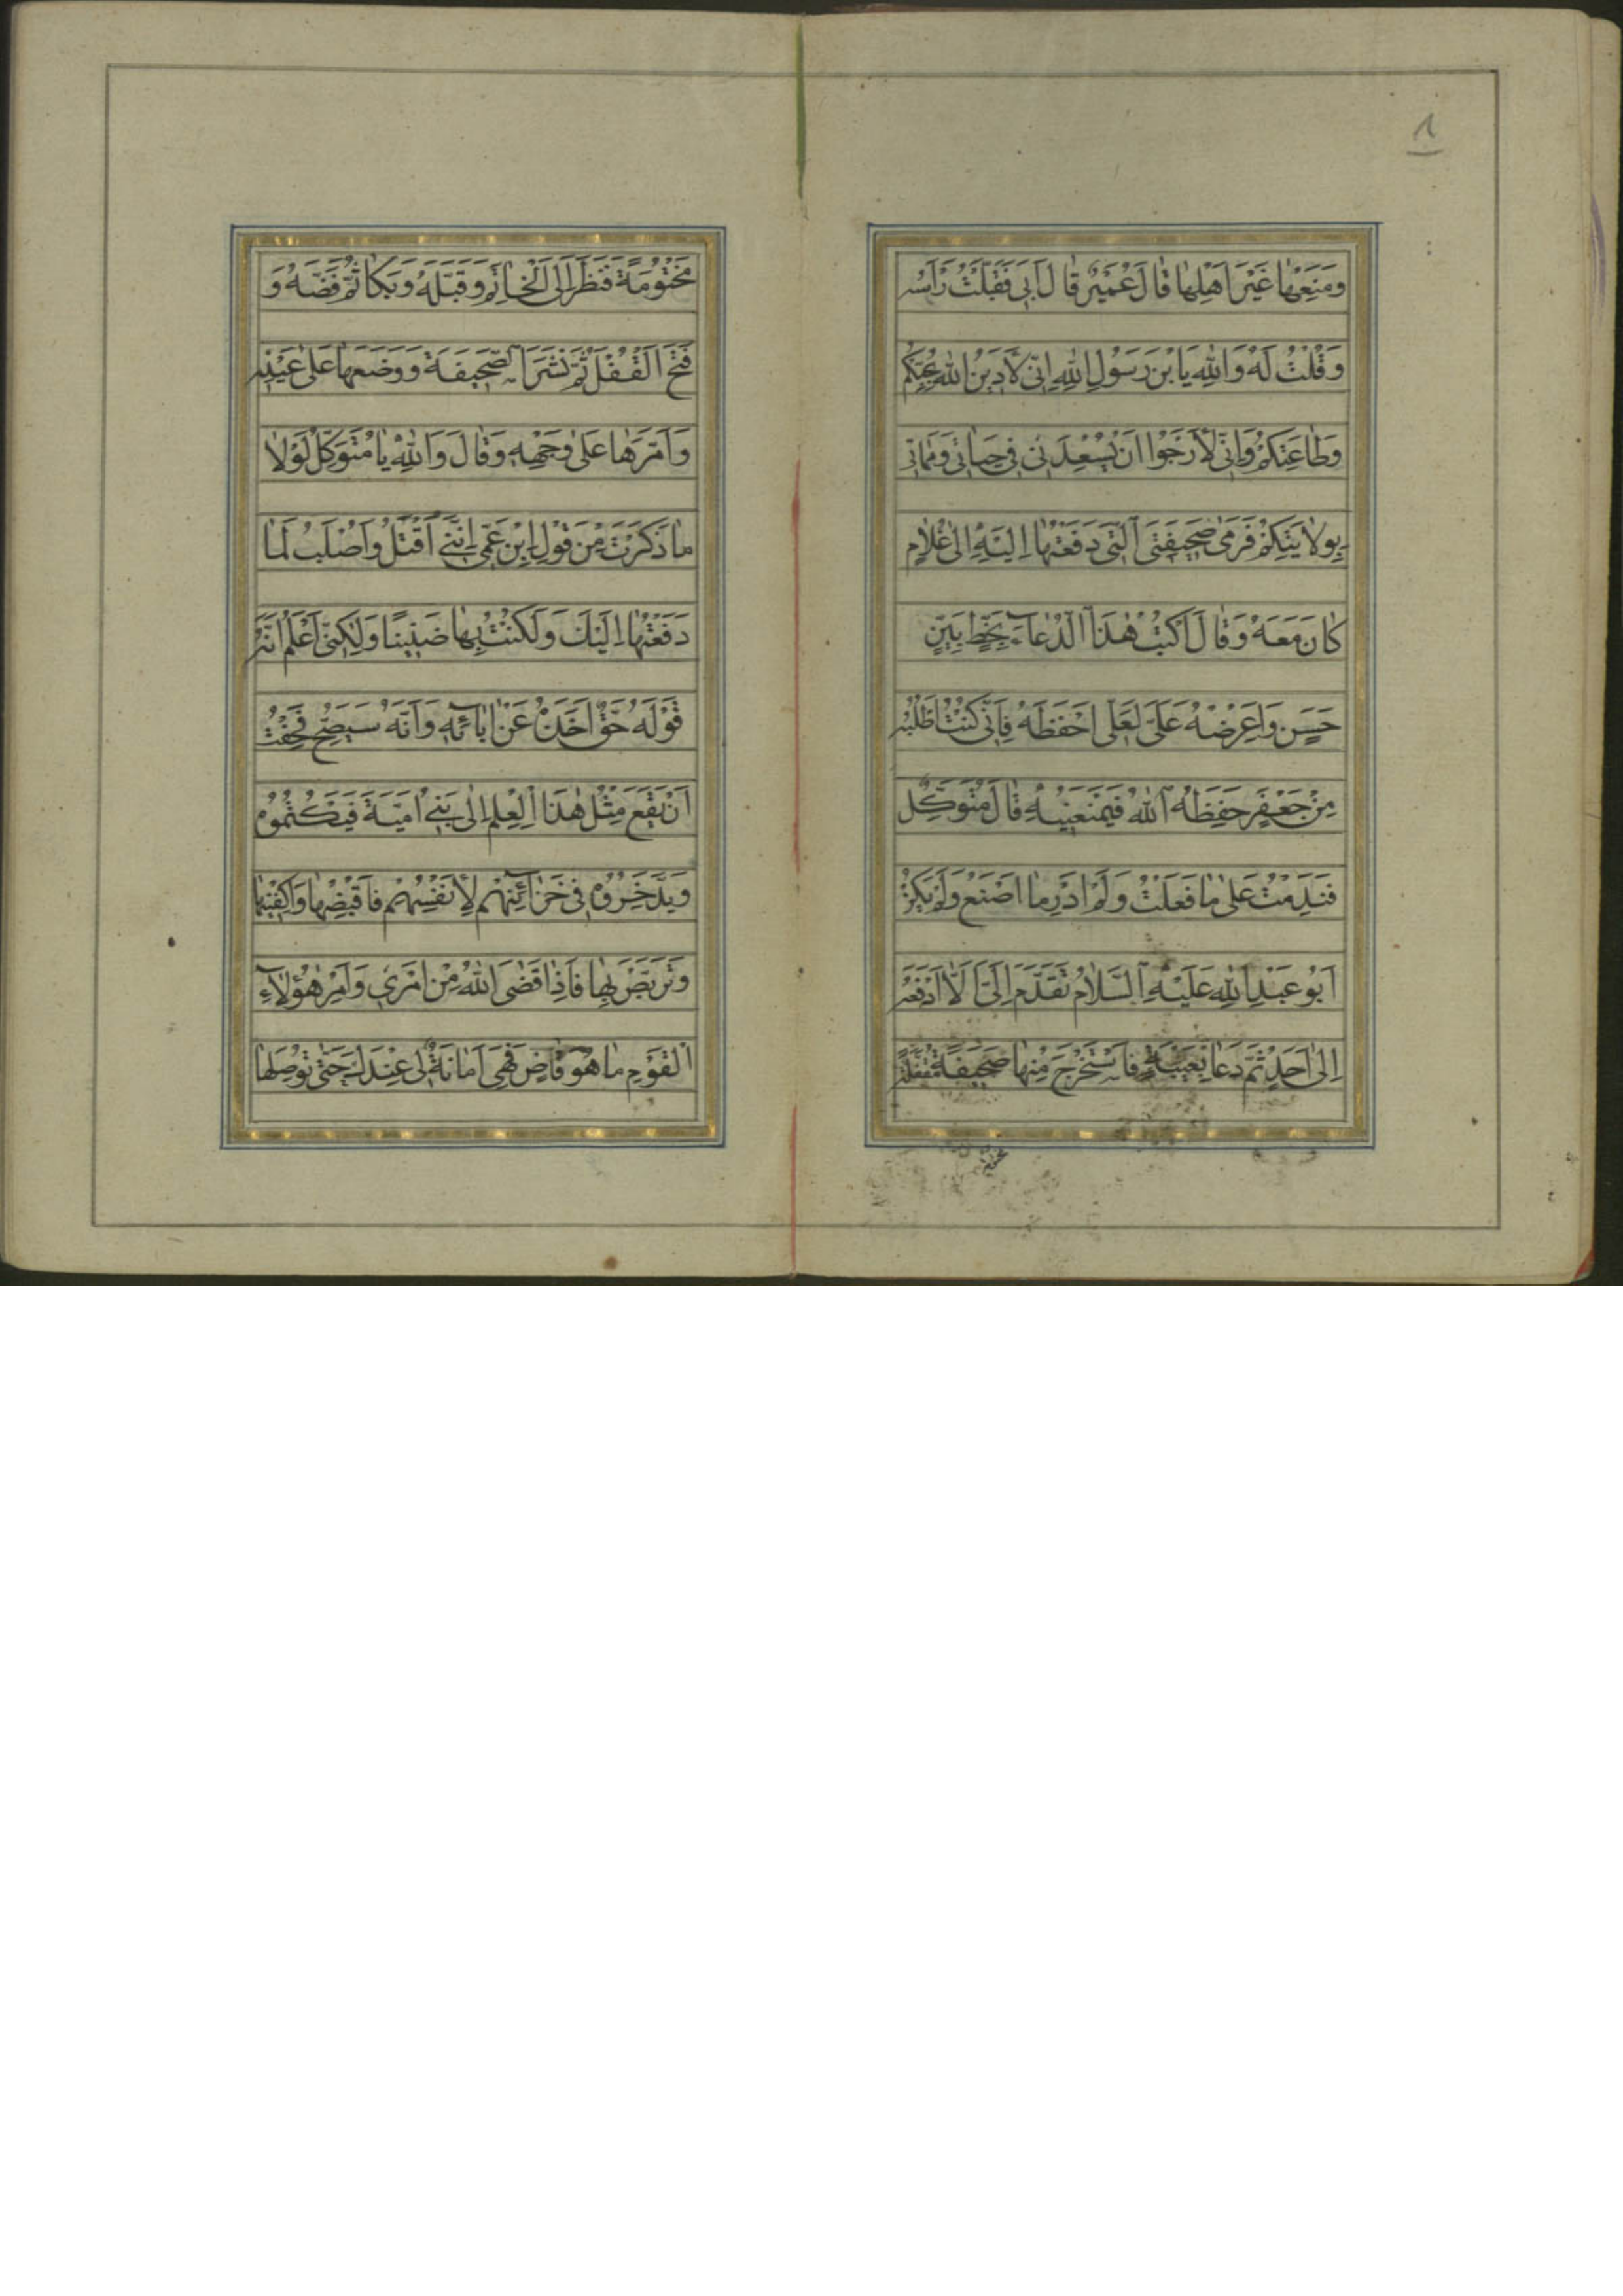 ٨
وَمَنَعَهٰا غَيْرَ اَهْلِهٰا قٰالَ عُمَيْرٌ قٰالَ اَبى فَقَبَّلْتُ رَاْسَهُ
وَقُلْتُ لَهُ وَاللّٰهِ يَا بْنَ رَسُولِ اللّٰهِ اِنّى لَاَدينُ اللّٰهَ بِحُبِّكُمْ
وَطٰاعَتِكُمْ وَاِنّى لَاَرْجُوا اَنْ يُسْعِدَنى فى حَيٰاتى وَمَمٰاتى
بِوِلٰايَتِكُمْ فَرَمىٰ صَحيفَتِىَ الَّتى دَفَعْتُهٰا اِلَيْهِ اِلىٰ غُلٰامٍ
كٰانَ مَعَهُ وَقٰالَ اكْتُبْ هٰذَا الدُّعٰآءَ بِخَطٍّ بَيِّنٍ
حَسَنٍ وَاعْرِضْهُ عَلَىَّ لَعَلّى اَحْفَظُهُ فَاِنّى كُنْتُ اَطْلُبُهُ
مِنْ جَعْفَرٍ حَفِظَهُ اللّٰهُ فَيَمْنَعُنيهِ قٰالَ مُتَوَكِّلٌ
فَنَدِمْتُ عَلىٰ مٰا فَعَلْتُ وَلَمْ اَدْرِ مٰا اَصْنَعُ وَلَمْ يَكُنْ
اَبُو عَبْدِ اللّٰهِ عَلَيْهِ السَّلٰامُ تَقَدَّمَ اِلَىَّ اَلَّا اَدْفَعَهُ
اِلىٰ اَحَدٍ ثُمَّ دَعٰا بِعَيْبَةٍ فَاسْتَخْرَجَ مِنْهٰا صَحيفَةً مُقْفَلَةً
مَخْتُومَةً فَنَظَرَ اِلَى الْخٰاتَمِ وَقَبَّلَهُ وَبَكٰا ثُمَّ فَضَّهُ وَ
فَتَحَ الْقُفْلَ ثُمَّ نَشَرَ الصَّحيفَةَ وَوَضَعَهٰا عَلىٰ عَيْنِهِ
وَاَمَرَّهٰا عَلىٰ وَجْهِهِ وَقٰالَ وَاللّٰهِ يٰا مُتَوَكِّلُ لَوْلٰا
مٰا ذَكَرْتَ مِنْ قَوْلِ ابْنِ عَمّى اِنَّنى اُقْتَلُ وَاُصْلَبُ لَمٰا
دَفَعْتُهٰا اِلَيْكَ وَلَكُنْتُ بِهٰا ضَنينًا وَلٰكِنّى اَعْلَمُ اَنَّ
قَوْلَهُ حَقٌّ اَخَذَهُ عَنْ اٰبٰائِهِ وَاَنَّهُ سَيَصِحُّ فَخِفْتُ
اَنْ يَقَعَ مِثْلُ هٰذَا الْعِلْمِ اِلىٰ بَنى اُمَيَّةَ فَيَكْتُمُوهُ
وَيَدَّخِرُوهُ فى خَزٰآئِنِهِمْ لِاَنْفُسِهِمْ فَاقْبِضْهٰا وَاكْفِنيهٰا
وَتَرَبَّصْ بِهٰا فَاِذٰا قَضَى اللّٰهُ مِنْ اَمْرى وَاَمْرِ هٰؤُلٰآءِ
الْقَوْمِ مٰا هُوَ قٰاضٍ فَهِىَ اَمٰانَةٌ لى عِنْدَكَ حَتّىٰ تُوصِلَهٰا